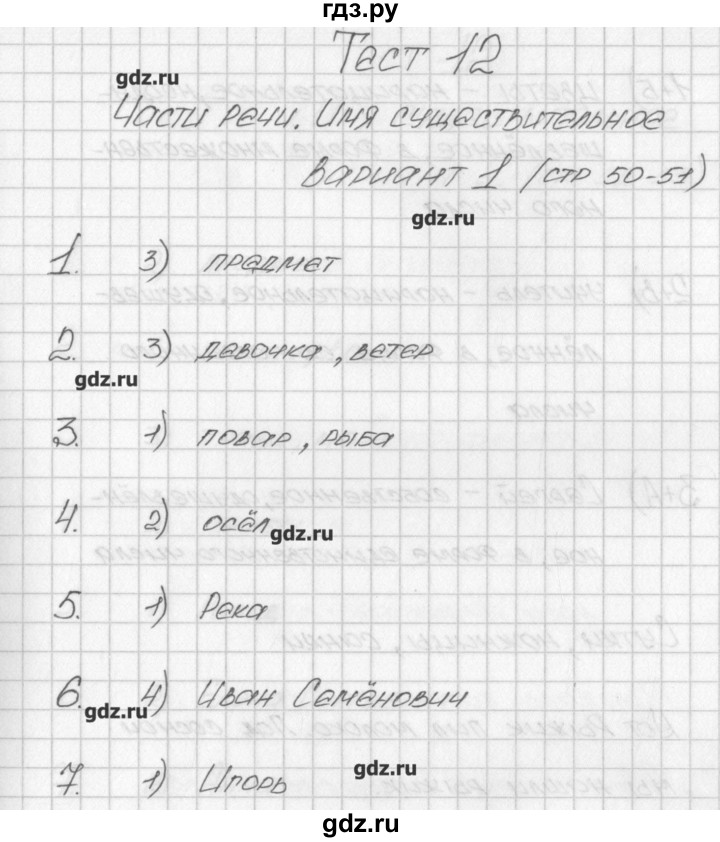 гдз.ру
Тест 12
gdz.ru
Части речи. Имя существительное
Вариант 1 (стр 50-51)
gdz.ru
1. 3) предмет
2. 3) девочка, ветер
gdz.ru
3. 1) повар, рыба
4. 2) осёл
gdz.ru
5. 1) Река
6. 4) Иван Семёнович
gdz.ru
7. 1) Игорь
gdz.ru
gdz.ru